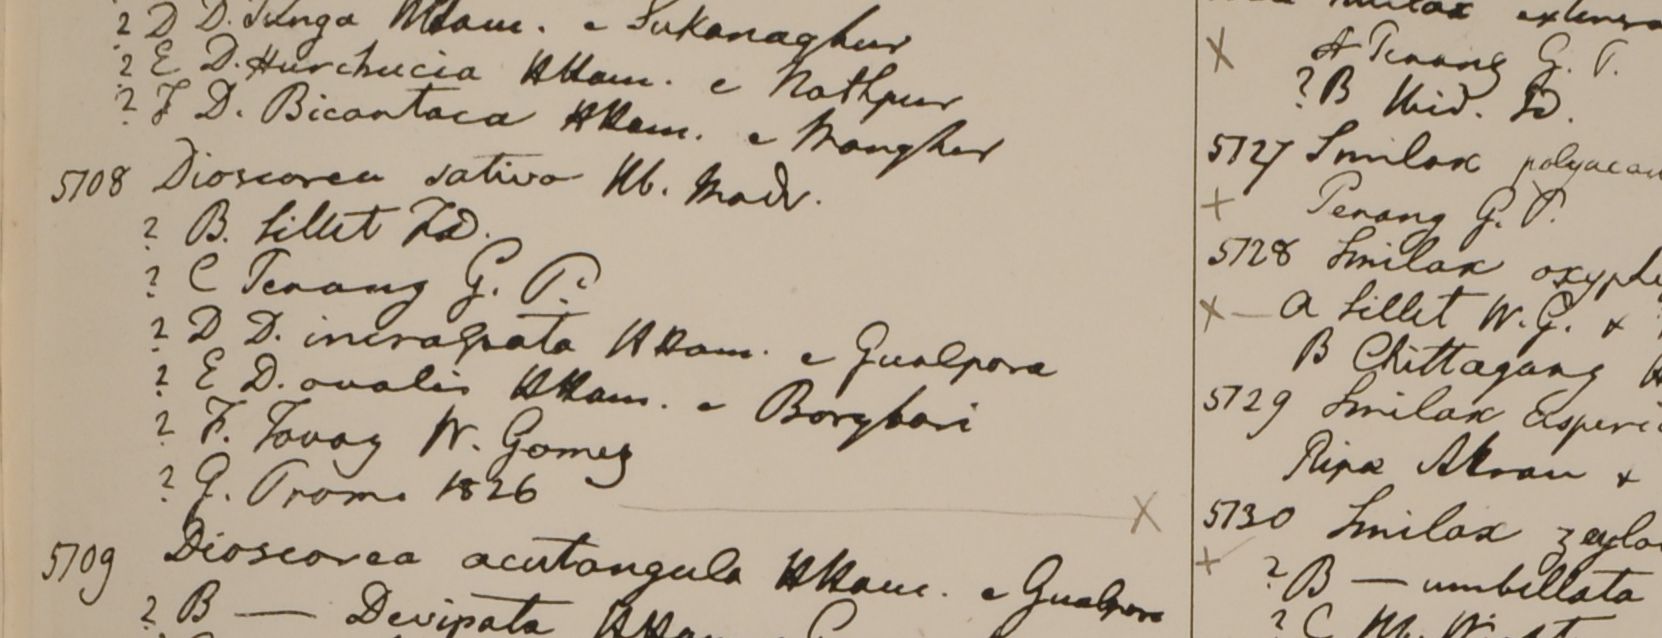 ? D D. Tunga HHam. e Sukanaghur
? E D. Hurchucia HHam. e Nathpur
? F D. Bicantaca HHam. e Mongher
5708 Dioscorea sativa Hb. Madr.
? B. Sillet FD.
? C Penang G. P.
? D D. incraspata HHam. e Gualpora
? E D. ovalis HHam. e Borghari
? F. Tavoy W. Gomez
? G. Prome 1826 X
5709 Dioscorea acutangula HHam. e Gualpora
? B — Devipata HHam
Smilax extensa
X A Penang G. P.
? B Ibid. ID.
5727 Smilax polyacan
+ Penang G. P.
5728 Smilax oxyphy
X — A Sillet W. G. +
B Chittagang
5729 Smilax asperic
Ripa +
5730 Smilax zeyla
+ ? B — umbellata
? C